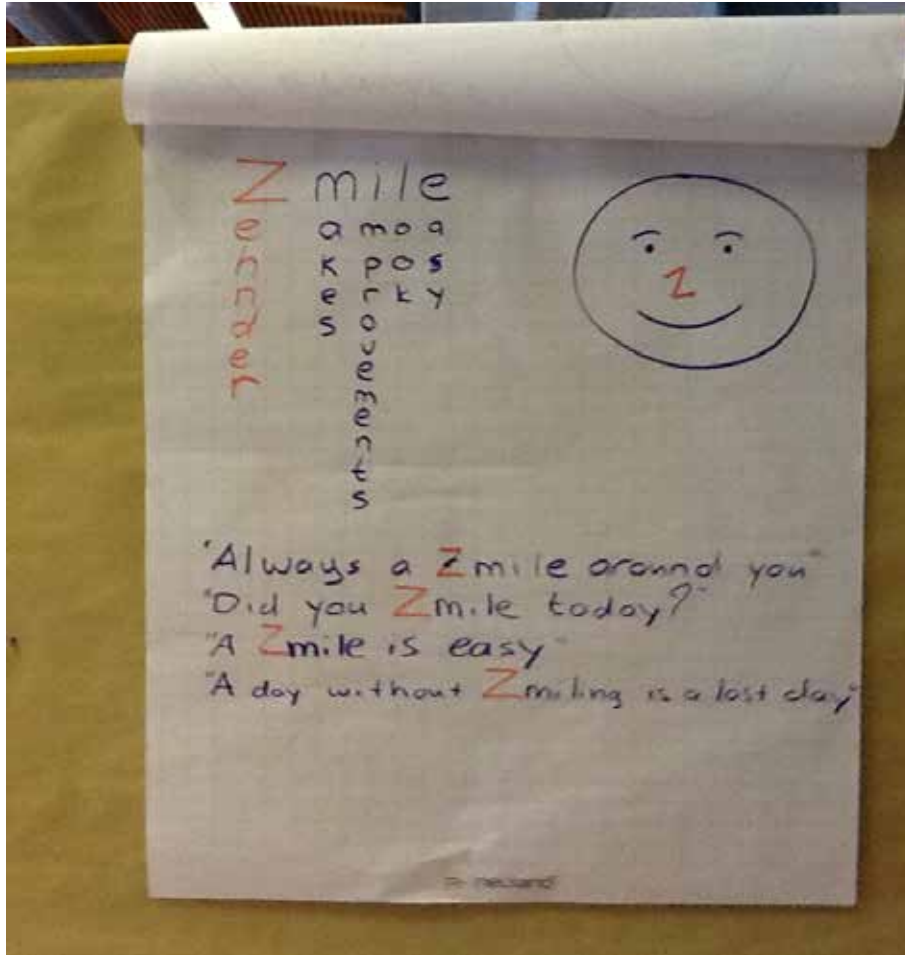 Zmile
Zennaer
makes
improvements
look
easy
Z
"Always a Zmile around you"
"Did you Zmile today?"
"A Zmile is easy"
"A day without Zmiling is a lost day"
neuland